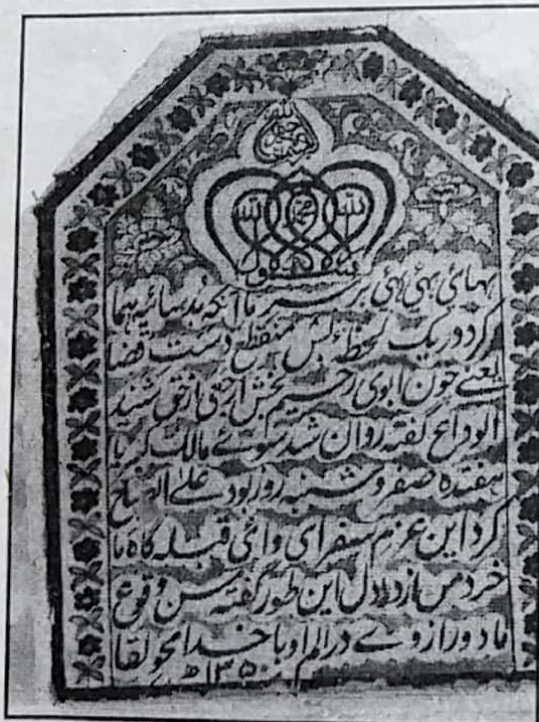 الله محمد الله
ہہائی ہئی ہئی بر سر ما آنکہ بد سایہ ہما
کرد در یک لحظۂ بش منقطع دست قضا
یعنے خون ابوی رحیم بخش از حق شنید
الوداع گفتہ روان شد سوئے مالک کبریا
ہفتدہ صفر و شنبہ روز بود علے الصباح
کرد این عزم سفر ای وائ قبلہ گاہ ما
خرد من از درد دل این طور گفتہ سن وقوع
ما دور از وے در الم او با خدا محو لقا
۱۳۵۰ھ